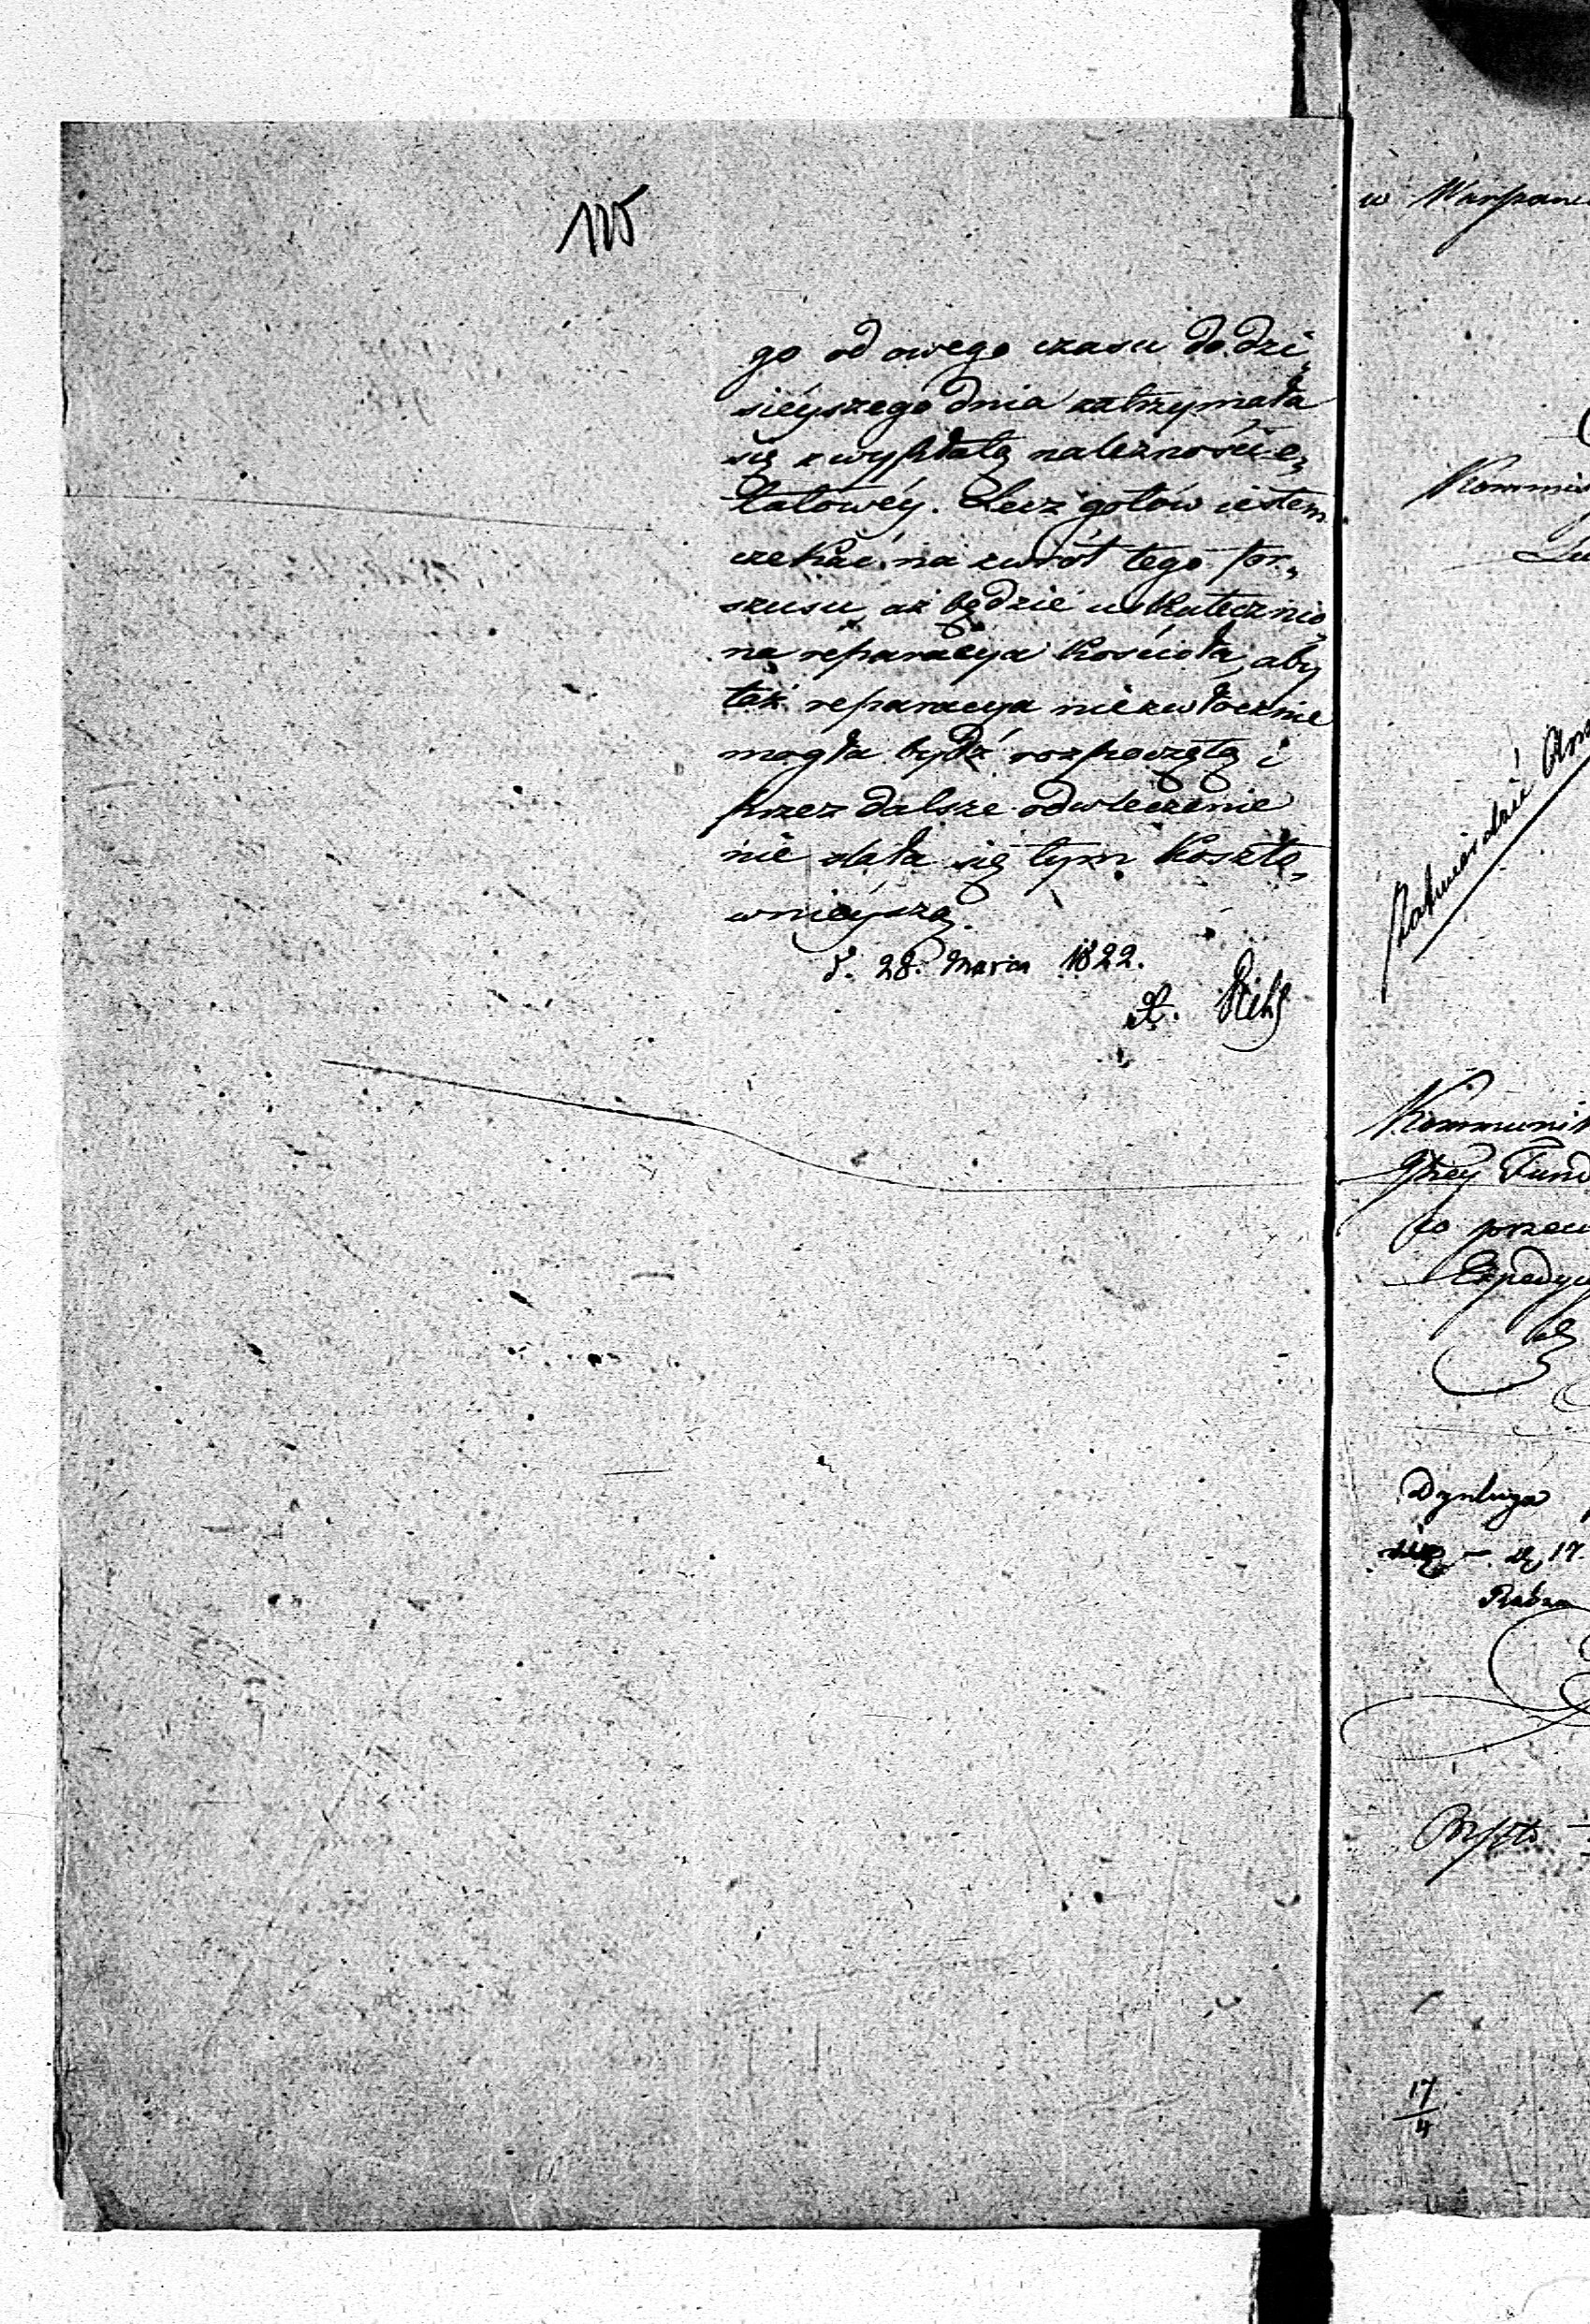 105
go od owego czasu do dzi„
sieyszego dnia zatrzymała
się z wypłatą należności e„
tatowéy. Lecz gotów iestem
czekać na zwrót tego for„
szusu, aż będzie uskutecznio„
na reparacya kościoła, aby
taż reparacya niezwłocznie
mogła bydź rozpoczętą i
przez dalsze odwleczenie
nie stała się tym koszto„
wnieyszą.
d. 28. Marca 1822.
w
Kommis
Kommunik
Fund
to
Expedyc
17
17
4